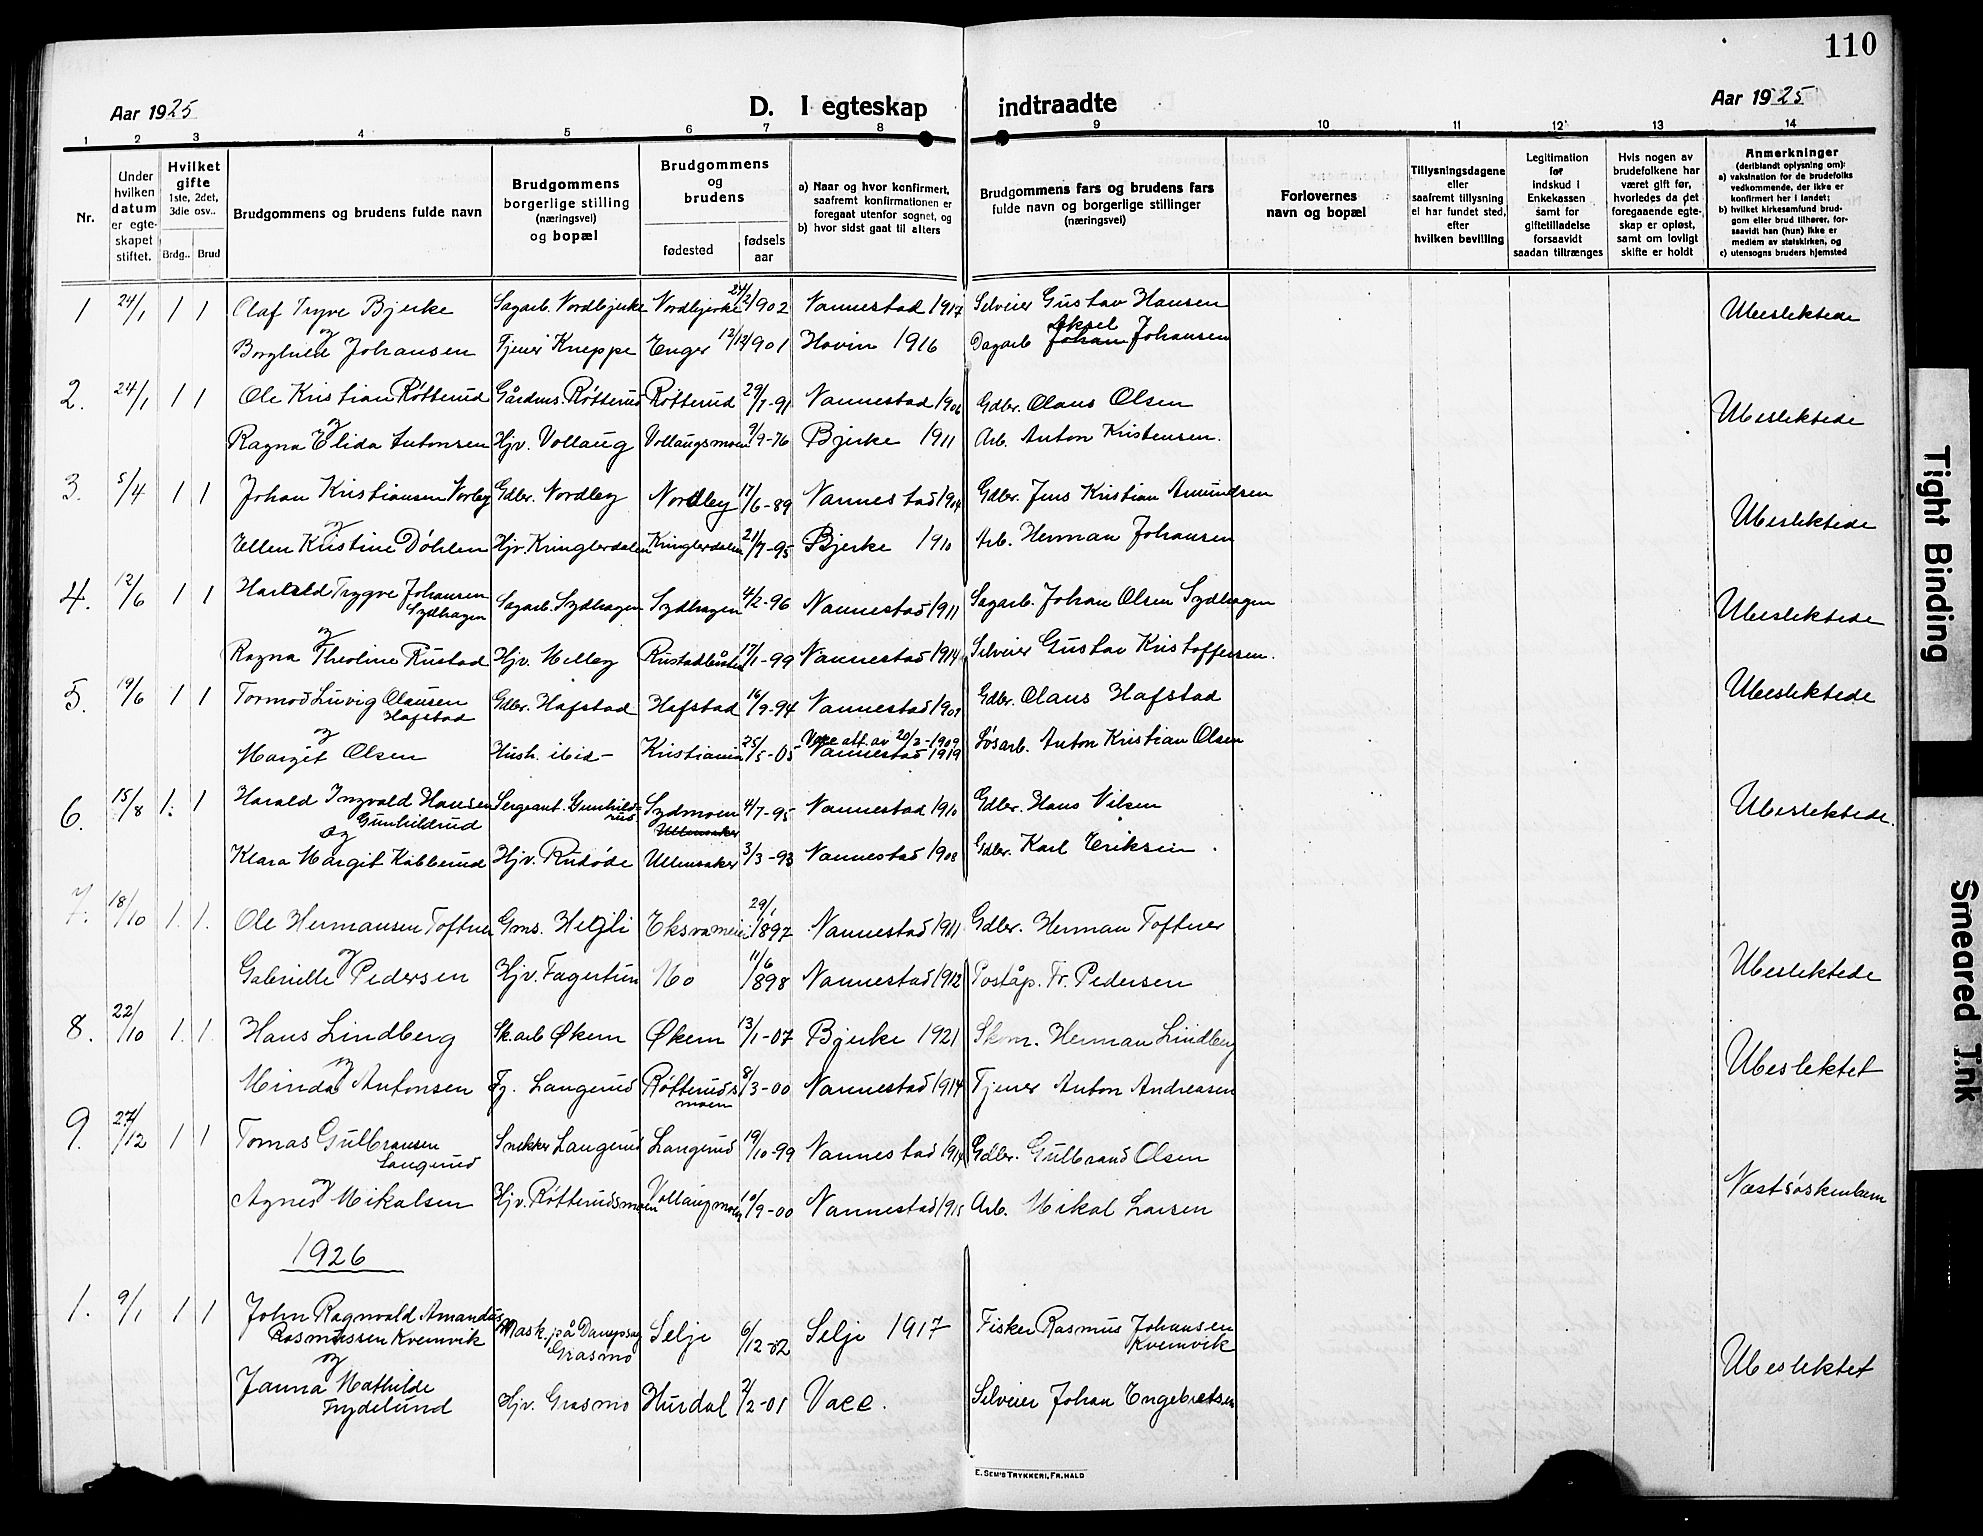 110
Aar 1925 D. I egteskap indtraadte Aar 1925
1 2 3 4 5 6 7 8 9 10 11 12 13 14
Nr.
Under hvilken datum er egteskapet stiftet.
Hvilket gifte 1ste, 2det, 3die osv..
Brdg.. Brud
Brudgommens og brudens fulde navn
Brudgommens borgerlige stilling (næringsvei) og bopæl
Brudgommens og brudens
fødested
fødsels aar
a) Naar og hvor konfirmert, saafremt konfirmationen er foregaat utenfor sognet, og
b) hvor sidst gaat til alters
Brudgommens fars og brudens fars fulde navn og borgerlige stillinger (næringsvei)
Forlovernes navn og bopæl
Tillysningsdagene eller saafremt tillysning ei har fundet sted, efter hvilken bevilling
Legitimation for indskud i Enkekassen samt for giftetilladelse forsaavidt saadan tiltrænges
Hvis nogen av brudefolkene har været gift før, hvorledes da det foregaaende egteskap er opløst, samt om lovligt skifte er holdt
Anmerkninger (deriblandt oplysning om):
a) vaksination for de brudefolks vedkommende, der ikke er konfirmert her i landet;
b) hvilket kirkesamfund brudgom eller brud tilhører, forsaavidt han (hun) ikke er medlem av statskirken, og
c) utensogns bruders hjemsted
1 24/1 1 1 Olaf Tryve Bjerke Sagarb. Nordbjerke Nordbjerke 24/2 1902 Nannestad 1917 Selveier Gustav Hansen Ubeslektede
og
Borghild Johansen Tjener Kneppe Enger 12/12 1901 Hovin 1916 Dagarb Johan Aksel Johansen
2. 24/1 1 1 Ole Kristian Røtterud Gårdms. Røtterud Røtterud 29/7-91 Nannestad 1906 Gdbr. Olaus Olsen Ubeslektede
og
Ragna Elida Antonsen Hjv. Vollaug Vollaugsmoen 9/9-76 Bjerke 1911 Arb. Anton Kristensen.
3. 5/4 1 1 Johan Kristiansen Norby Gdbr. Nordby Nordby 17/6-89 Nannestad 1904 Gdbr. Jens Kristian Amundsen Ubeslektede
og
Ellen Kristine Døhlen Hjv. Kringlerdalen Kringlerdalen 21/7-95 Bjerke 1910 Arb. Herman Johansen
4. 12/6 1 1 Harald Trygve Johansen Sydhagen Sagarb. Sydhagen Sydhagen 4/2-96 Nannestad 1911 Sagarb. Johan Olsen Sydhagen Ubeslektede
og
Ragna Theoline Rustad Hjv. Melby 17/1-99 Nannestad 1914 Selveier Gustav Kristoffersen.
5. 19/6 1 1 Tormod Luvig Olausen Hafstad Gdbr. Hafstad Hafstad 16/9-94 Nannestad 1909 Gdbr. Olaus Hafstad Ubeslektede
og
Margit Olsen Hush. ibid- Kristiania 25/5-05 Vacc. att. av 20/2-1909 Nannestad 1919 Løsarb. Anton Kristian Olsen
6. 15/8 1. 1 Harald Ingvald Hansen Gunhildrud Sergeant. Gunhildrud Sydmoen Ullensaker 4/7-95 Nannestad 1910 Gdbr. Hans Nilsen Ubeslektede.
og
Klara Margit Kabberud Hjv. Rudøde Ullensaker 3/3-93 Nannestad 1908 Gdbr. Karl Eriksen
7. 18/10 1. 1. Ole Hermansen Toftner Gms. Heljli 29/1 1897 Nannestad 1911 Gdbr. Herman Toftner
og
Gabrielle Pedersen Hjv. Fagertun Mo 11/6 1898 Nannestad 1912 Poståp. Fr. Pedersen Ubeslektede
8. 22/10 1. 1. Hans Lindberg Sk.arb Økern Økern 13/1-07 Bjerke 1921 Skom. Herman Lindberg Ubeslektet
og
Minda Antonsen Fj. Langerud Røtterudsmoen 8/3-00 Nannestad 1914 Tjener Anton Andreasen
9. 27/12 1 1 Tomas Gulbransen Langerud Snekker Langerud Langerud 19/10-99 Nannestad 1914 Gdbr. Gulbrand Olsen
og
Agnes Mikalsen Hjv. Røtterudsmoen Vollaugmoen 10/9-00 Nannestad 1915 Arb. Mikal Larsen Næstsøskenbarn
1926
1. 9/1 1 1 John Ragnvald Amandus Rasmussen Kvernvik Mask. på Dampsag Grasmo Selje 6/12-02 Selje 1917 Fisker Rasmus Johansen Kvernvik
og Ubeslektet
Janna Mathilde Frydelund Hjv. Grasmo Hurdal 2/2-01 Vacc. Selveier Johan Engebretsen
E. SEM'S TRYKKERI, FR.HALD
Tight Binding
Smeared Ink